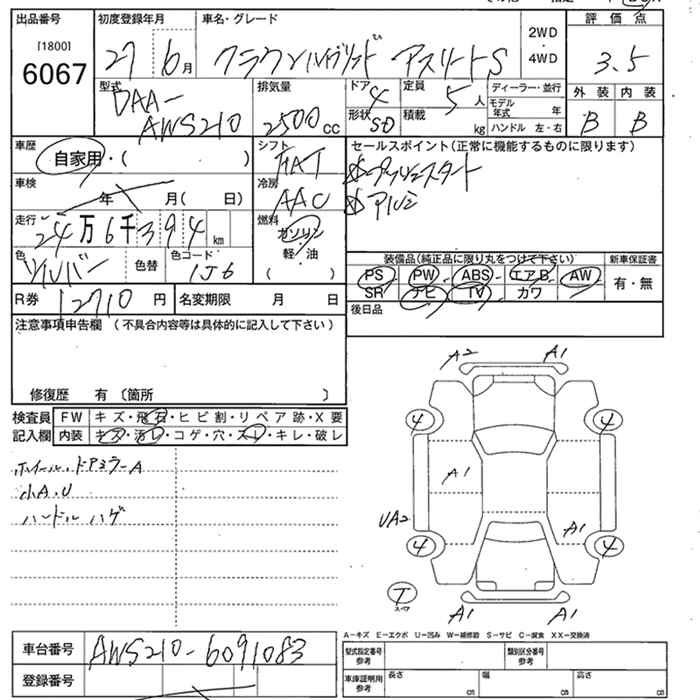 出品番号 [1800] 6067
初度登録年月 27年 6月
車名・グレード クラウンハイブリッド アスリートS
2WD・4WD
評価点 3.5
型式 DAA-AWS210
排気量 2500cc
ドア 4
形状 SD
定員 5人
積載 kg
ディーラー・並行
モデル年式 年
ハンドル 左・右
外装 B
内装 B
車歴 自家用・( )
シフト FAT
セールスポイント(正常に機能するものに限ります)
プッシュスタート
アルミ
車検 年 月( 日)
冷房 AAC
走行 24万6千394km
燃料 ガソリン 軽・油 ( )
色 シルバー
色替
色コード 1J6
装備品(純正品に限り丸をつけて下さい)
新車保証書
PS PW ABS エアB AW
有・無
SR ナビ TV カワ
R券 12710円
名変期限 月 日
後日品
注意事項申告欄 (不具合内容等は具体的に記入して下さい)
修復歴 有 〔箇所 〕
検査員記入欄
FW キズ・飛石・ヒビ割・リペア跡・X要
内装 キズ・汚レ・コゲ・穴・スレ・キレ・破レ
ホイール・ドアミラーA
小A.U
ハンドルハゲ
A2 A1
4 4
A1
UA2 A1
4 4
T スペア
A1 A1
A-キズ E-エクボ U-凹み W-補修跡 S-サビ C-腐食 XX-交換済
車台番号 AWS210-6091083
型式指定番号 参考
類別区分番号 参考
登録番号
車庫証明用 参考 長さ cm 幅 cm 高さ cm